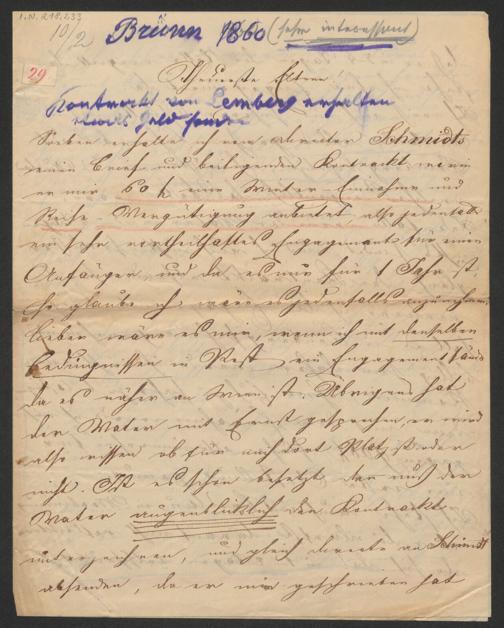 I.N. 218.233
10/2 Brünn 1860 (sehr interessant)
29
Theuerste Eltern!
Kontrackt von Lemberg erhalten
Soeben erhalte ich von Director Schmidts
einen Brief und beiliegenden Kontrackt, worin
er mir 60 f eine Winter-Einnahme und
Reise-Vergütigung anbietet, also jedenfalls
ein sehr vortheilhaftes Engagement für einen
Anfänger, und da es nur für 1 Jahr ist,
so glaube ich wäre es jedenfalls anzunehmen,
lieber wäre es mir, wenn ich mit denselben
Bedingnissen in Pest ein Engagement fände
da es näher an Wien ist. Übrigens hat
der Vater mit Ernst gesprochen, er wird
also wissen ob für mich dort Platz ist oder
nicht. Ist es schon besetzt, dan muß der
Vater augenblicklich den Kontrackt
unterzeichnen, und gleich directe an Schmidt
absenden, da er mir geschrieben hat